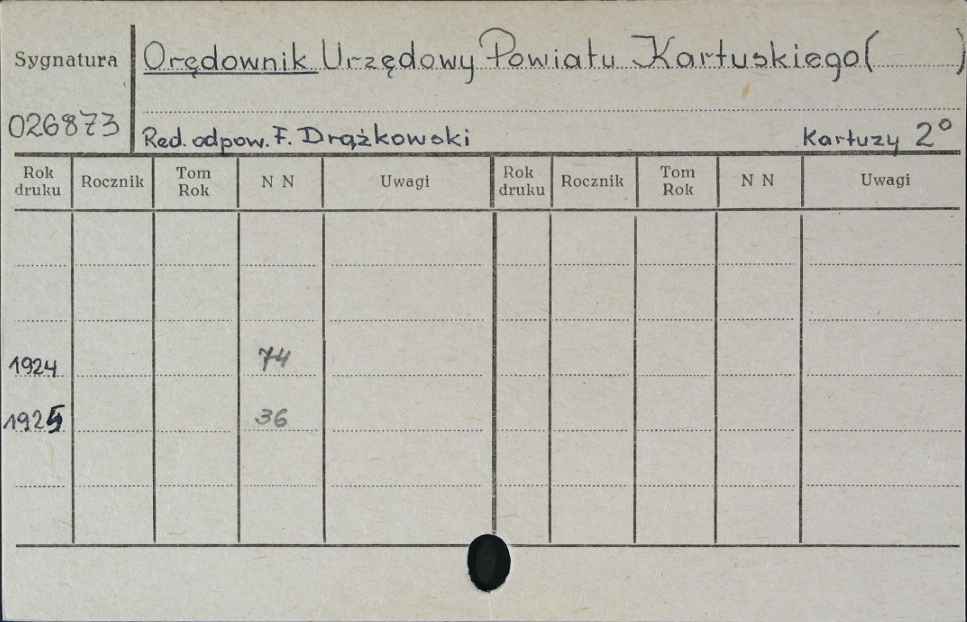 Sygnatura
Orędownik Urzędowy Powiatu Kartuskiego( )
026873
Red. odpow. F. Drążkowski Kartuzy 2°
Rok druku Rocznik Tom Rok N N Uwagi Rok druku Rocznik Tom Rok N N Uwagi
1924 74
1925 36